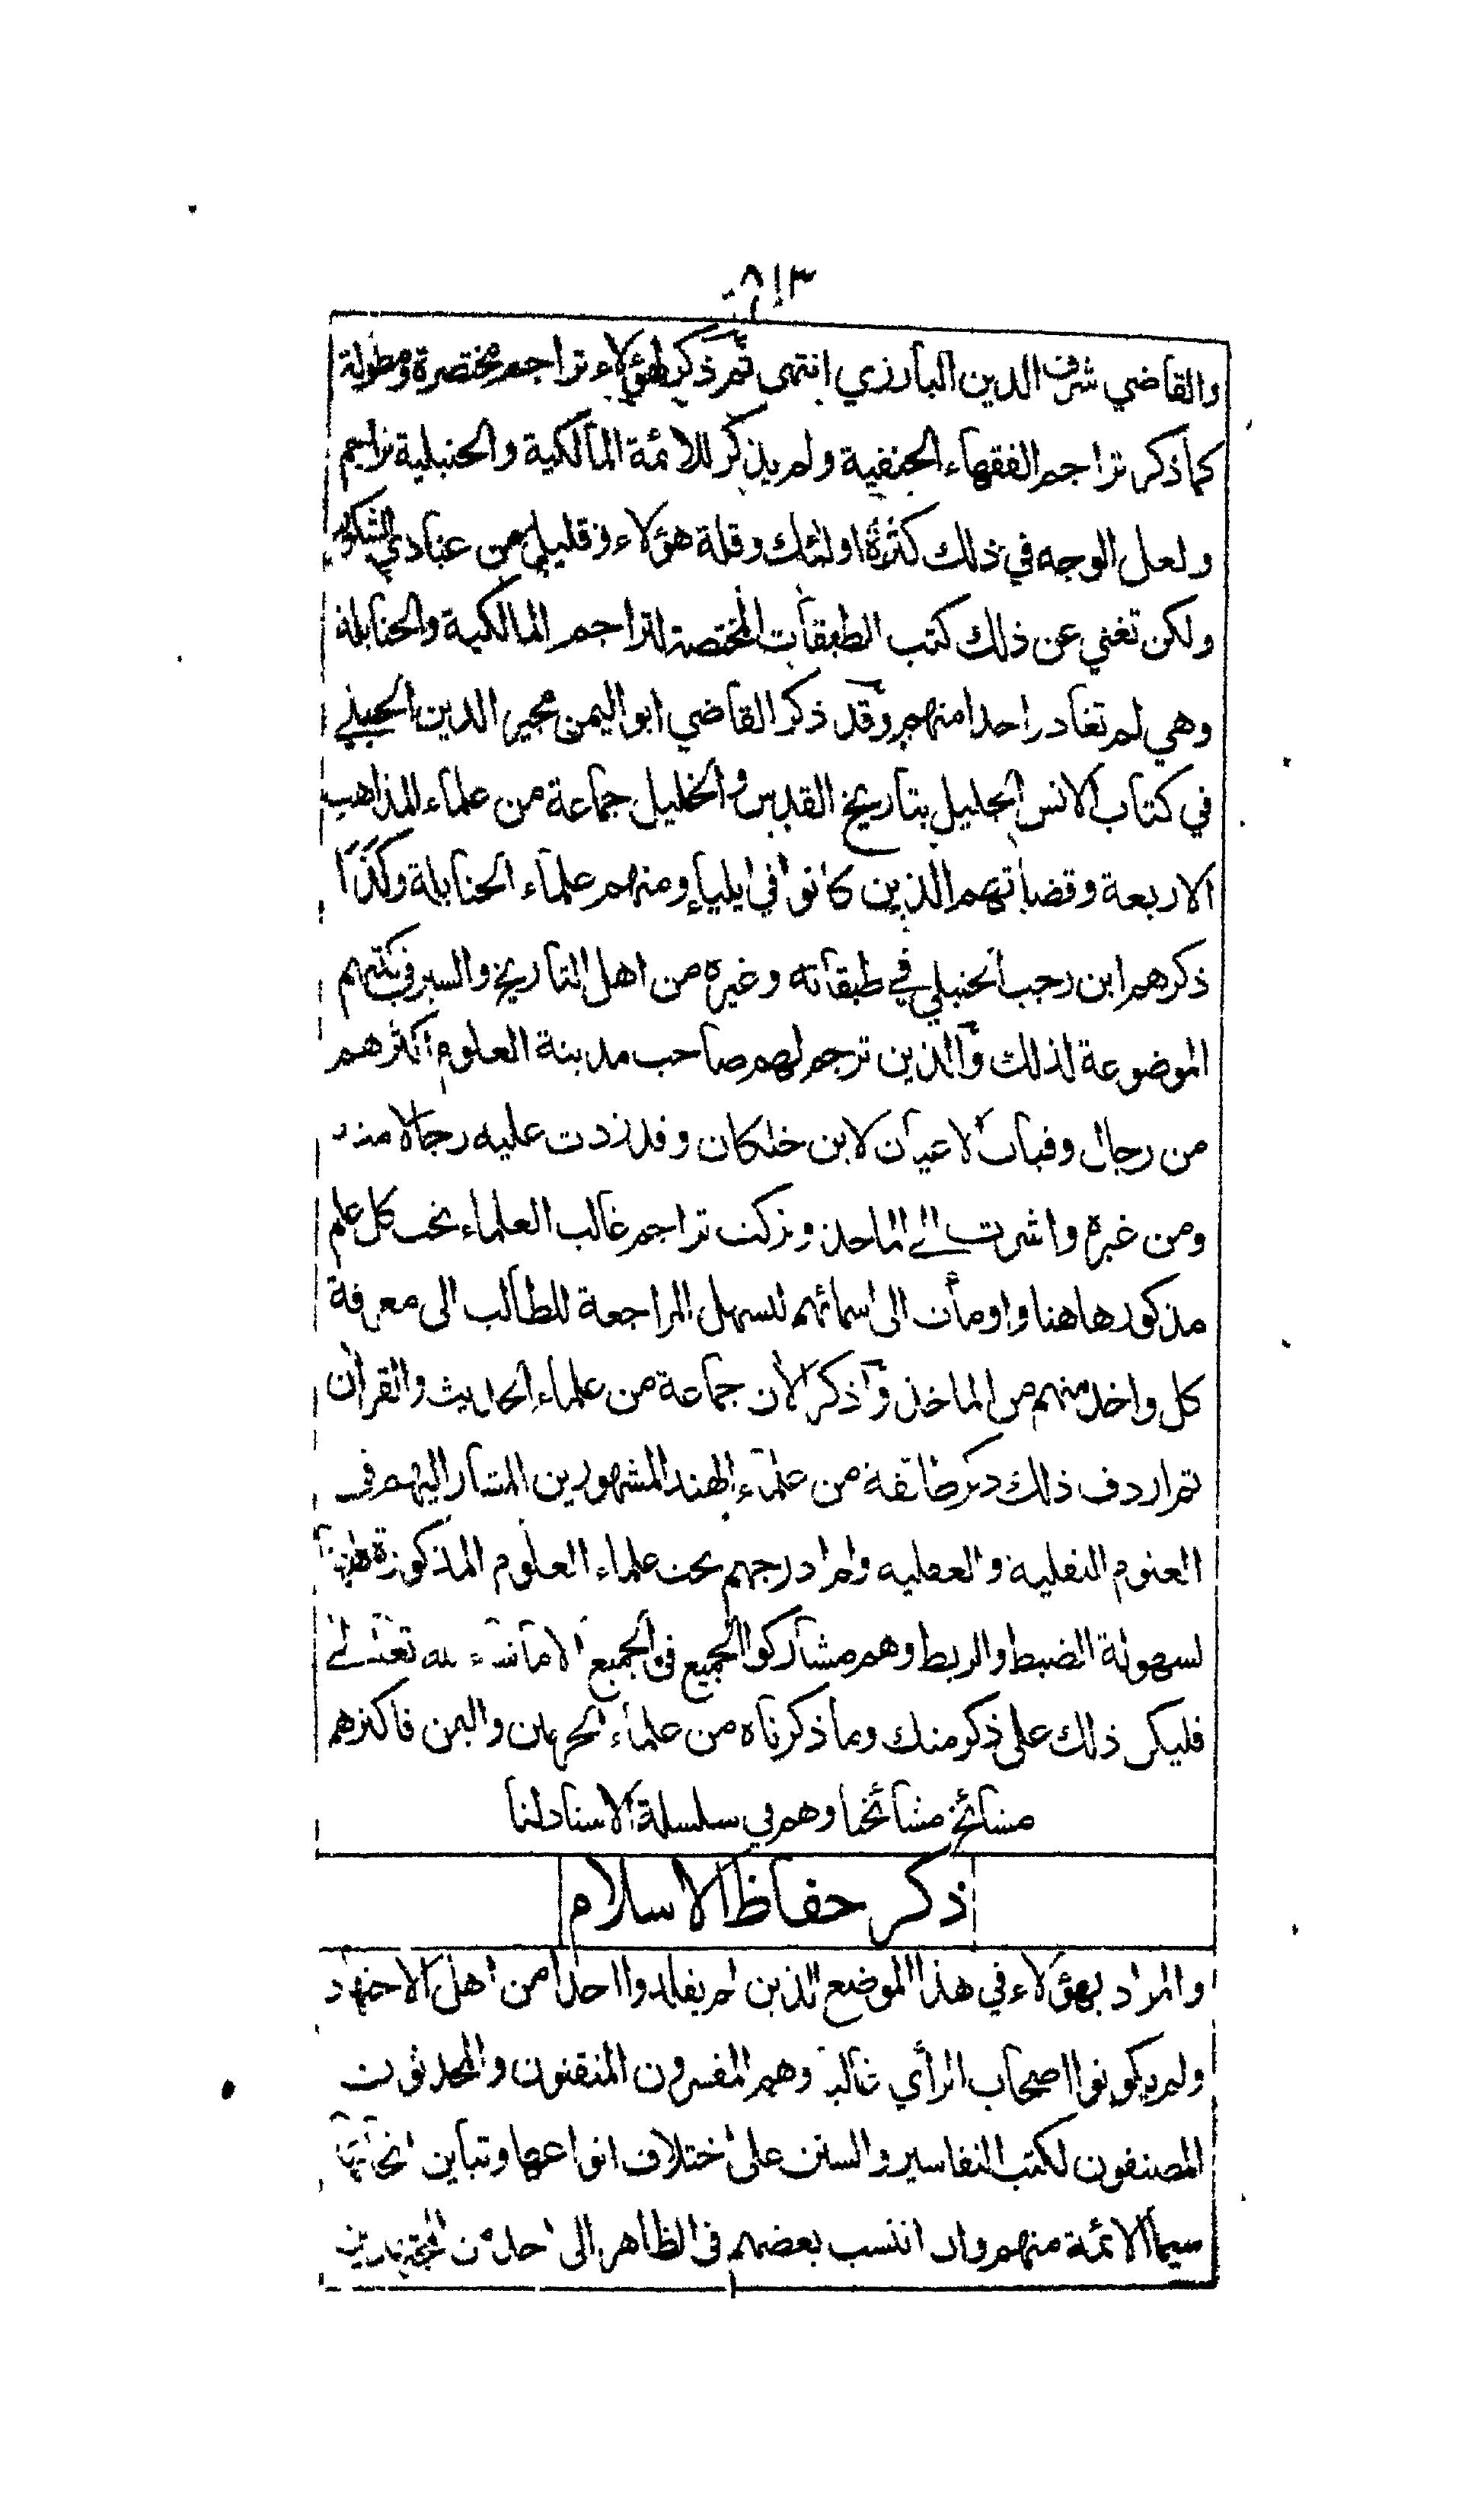 ٨١٣
والقاضي شرف الدين البارزي انتهى ثم ذكر لهؤلاء تراجم مختصرة ومطولة
كما ذكر تراجم الفقهاء الحنفية ولم يذكر للائمة المالكية والحنبلية تراجم
ولعل الوجه في ذلك كثرة اولئك وقلة هؤلاء وقليل من عبادي الشكور
ولكن تغني عن ذلك كتب الطبقات المختصة لتراجم المالكية والحنابلة
وهي لم تغادر احدا منهم وقد ذكر القاضي ابو اليمن مجير الدين الحنبلي
في كتاب الانس الجليل بتاريخ القدس والخليل جماعة من علماء المذاهب
الاربعة وقضاتهم الذين كانوا في ايلياء ومنهم علماء الحنابلة وكذا
ذكرهم ابن رجب الحنبلي في طبقاته وغيره من اهل التاريخ والسير في كتبهم
الموضوعة لذلك والذين ترجم لهم صاحب مدينة العلوم اكثرهم
من رجال وفيات الاعيان لابن خلكان وقد زدت عليه رجالا منه
ومن غيره واشرت الى الماخذ وذكرت تراجم غالب العلماء تحت كل علم
مذكور هاهنا واومأت الى اسمائهم لتسهل المراجعة للطالب الى معرفة
كل واحد منهم من الماخذ واذكر الآن جماعة من علماء الحديث والقرآن
ثم اردف ذلك ذكر طائفة من علماء الهند المشهورين المشار اليهم في
العلوم النقلية والعقلية ولم ادرجهم تحت علماء العلوم المذكورة هنا
لسهولة الضبط والربط وهم مشاركوا الجميع في الجميع الا ما شاء الله تعالى
فليكن ذلك على ذكر منك وما ذكرناه من علماء الحرمين واليمن فاكثرهم
مشائخ مشائخنا وهم في سلسلة الاسناد لنا
ذكر حفاظ الاسلام
والمراد بهؤلاء في هذا الموضع الذين لم يقلدوا احدا من اهل الاجتهاد
ولم يكونوا اصحاب الرأي غالبا وهم المفسرون المتقنون والمحدثون
المصنفون لكتب التفاسير والسنن على اختلاف انواعها وتباين انحائها
سيما الائمة منهم وان انتسب بعضهم في الظاهر الى احد من المجتهدين